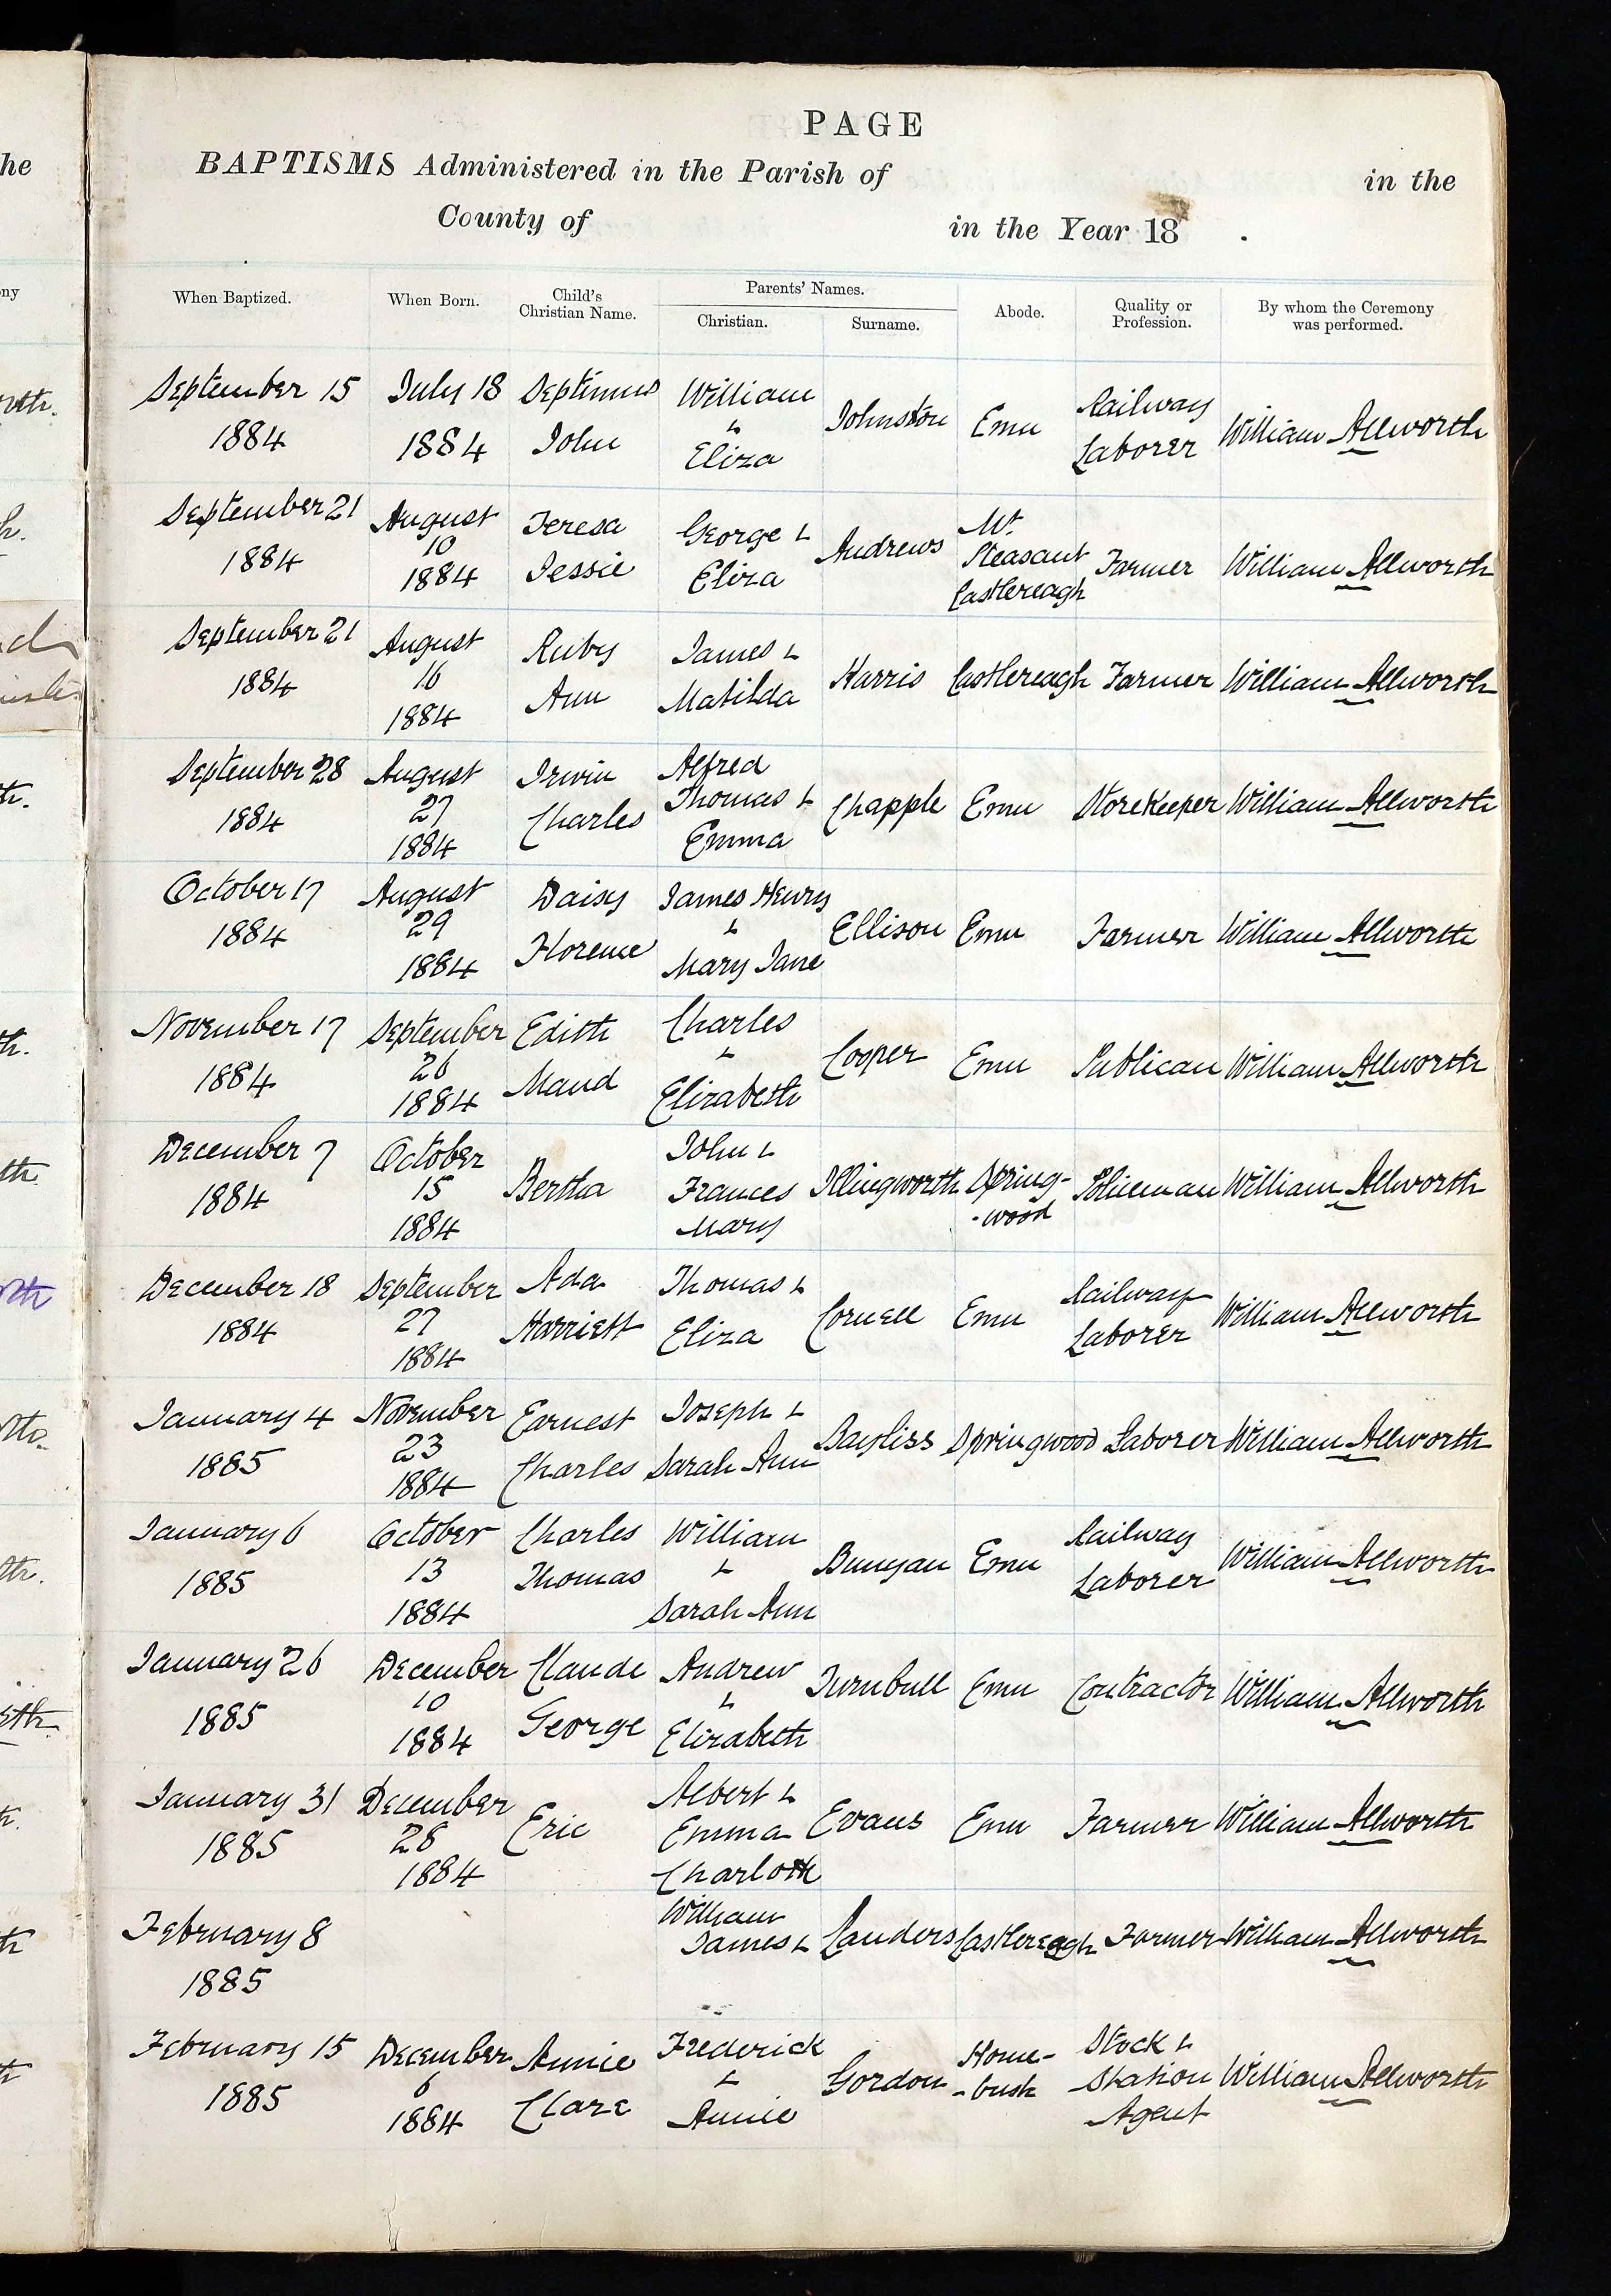 PAGE
BAPTISMS Administered in the Parish of in the
County of in the Year 18 .
When Baptized. When Born. Child's Christian Name. Parents' Names. Christian. Surname. Abode. Quality or Profession. By whom the Ceremony was performed.
September 15 1884 July 18 1884 Septimus John William & Eliza Johnston Emu Railway Laborer William Allworth
September 21 1884 August 10 1884 Teresa Jessie George & Eliza Andrews Mt. Pleasant Castlereagh Farmer William Allworth
September 21 1884 August 16 1884 Ruby Ann James & Matilda Harris Castlereagh Farmer William Allworth
September 28 1884 August 27 1884 Irwin Charles Alfred Thomas & Emma Chapple Emu Storekeeper William Allworth
October 17 1884 August 29 1884 Daisy Florence James Henry & Mary Jane Ellison Emu Farmer William Allworth
November 17 1884 September 26 1884 Edith Maud Charles & Elizabeth Cooper Emu Publican William Allworth
December 7 1884 October 15 1884 Bertha John & Frances Mary Illingworth Spring- -wood Policeman William Allworth
December 18 1884 September 27 1884 Ada Harriett Thomas & Eliza Cornell Emu Railway Laborer William Allworth
January 4 1885 November 23 1884 Earnest Charles Joseph & Sarah Ann Bayliss Springwood Laborer William Allworth
January 6 1885 October 13 1884 Charles Thomas William & Sarah Ann Bunyan Emu Railway Laborer William Allworth
January 26 1885 December 10 1884 Claude George Andrew & Elizabeth Turnbull Emu Contractor William Allworth
January 31 1885 December 28 1884 Eric Albert & Emma Charlotte Evans Emu Farmer William Allworth
February 8 1885 William James & Landers Castlereagh Farmer William Allworth
February 15 1885 December 6 1884 Annie Clare Frederick & Annie Gordon Home- -bush Stock & Station Agent William Allworth